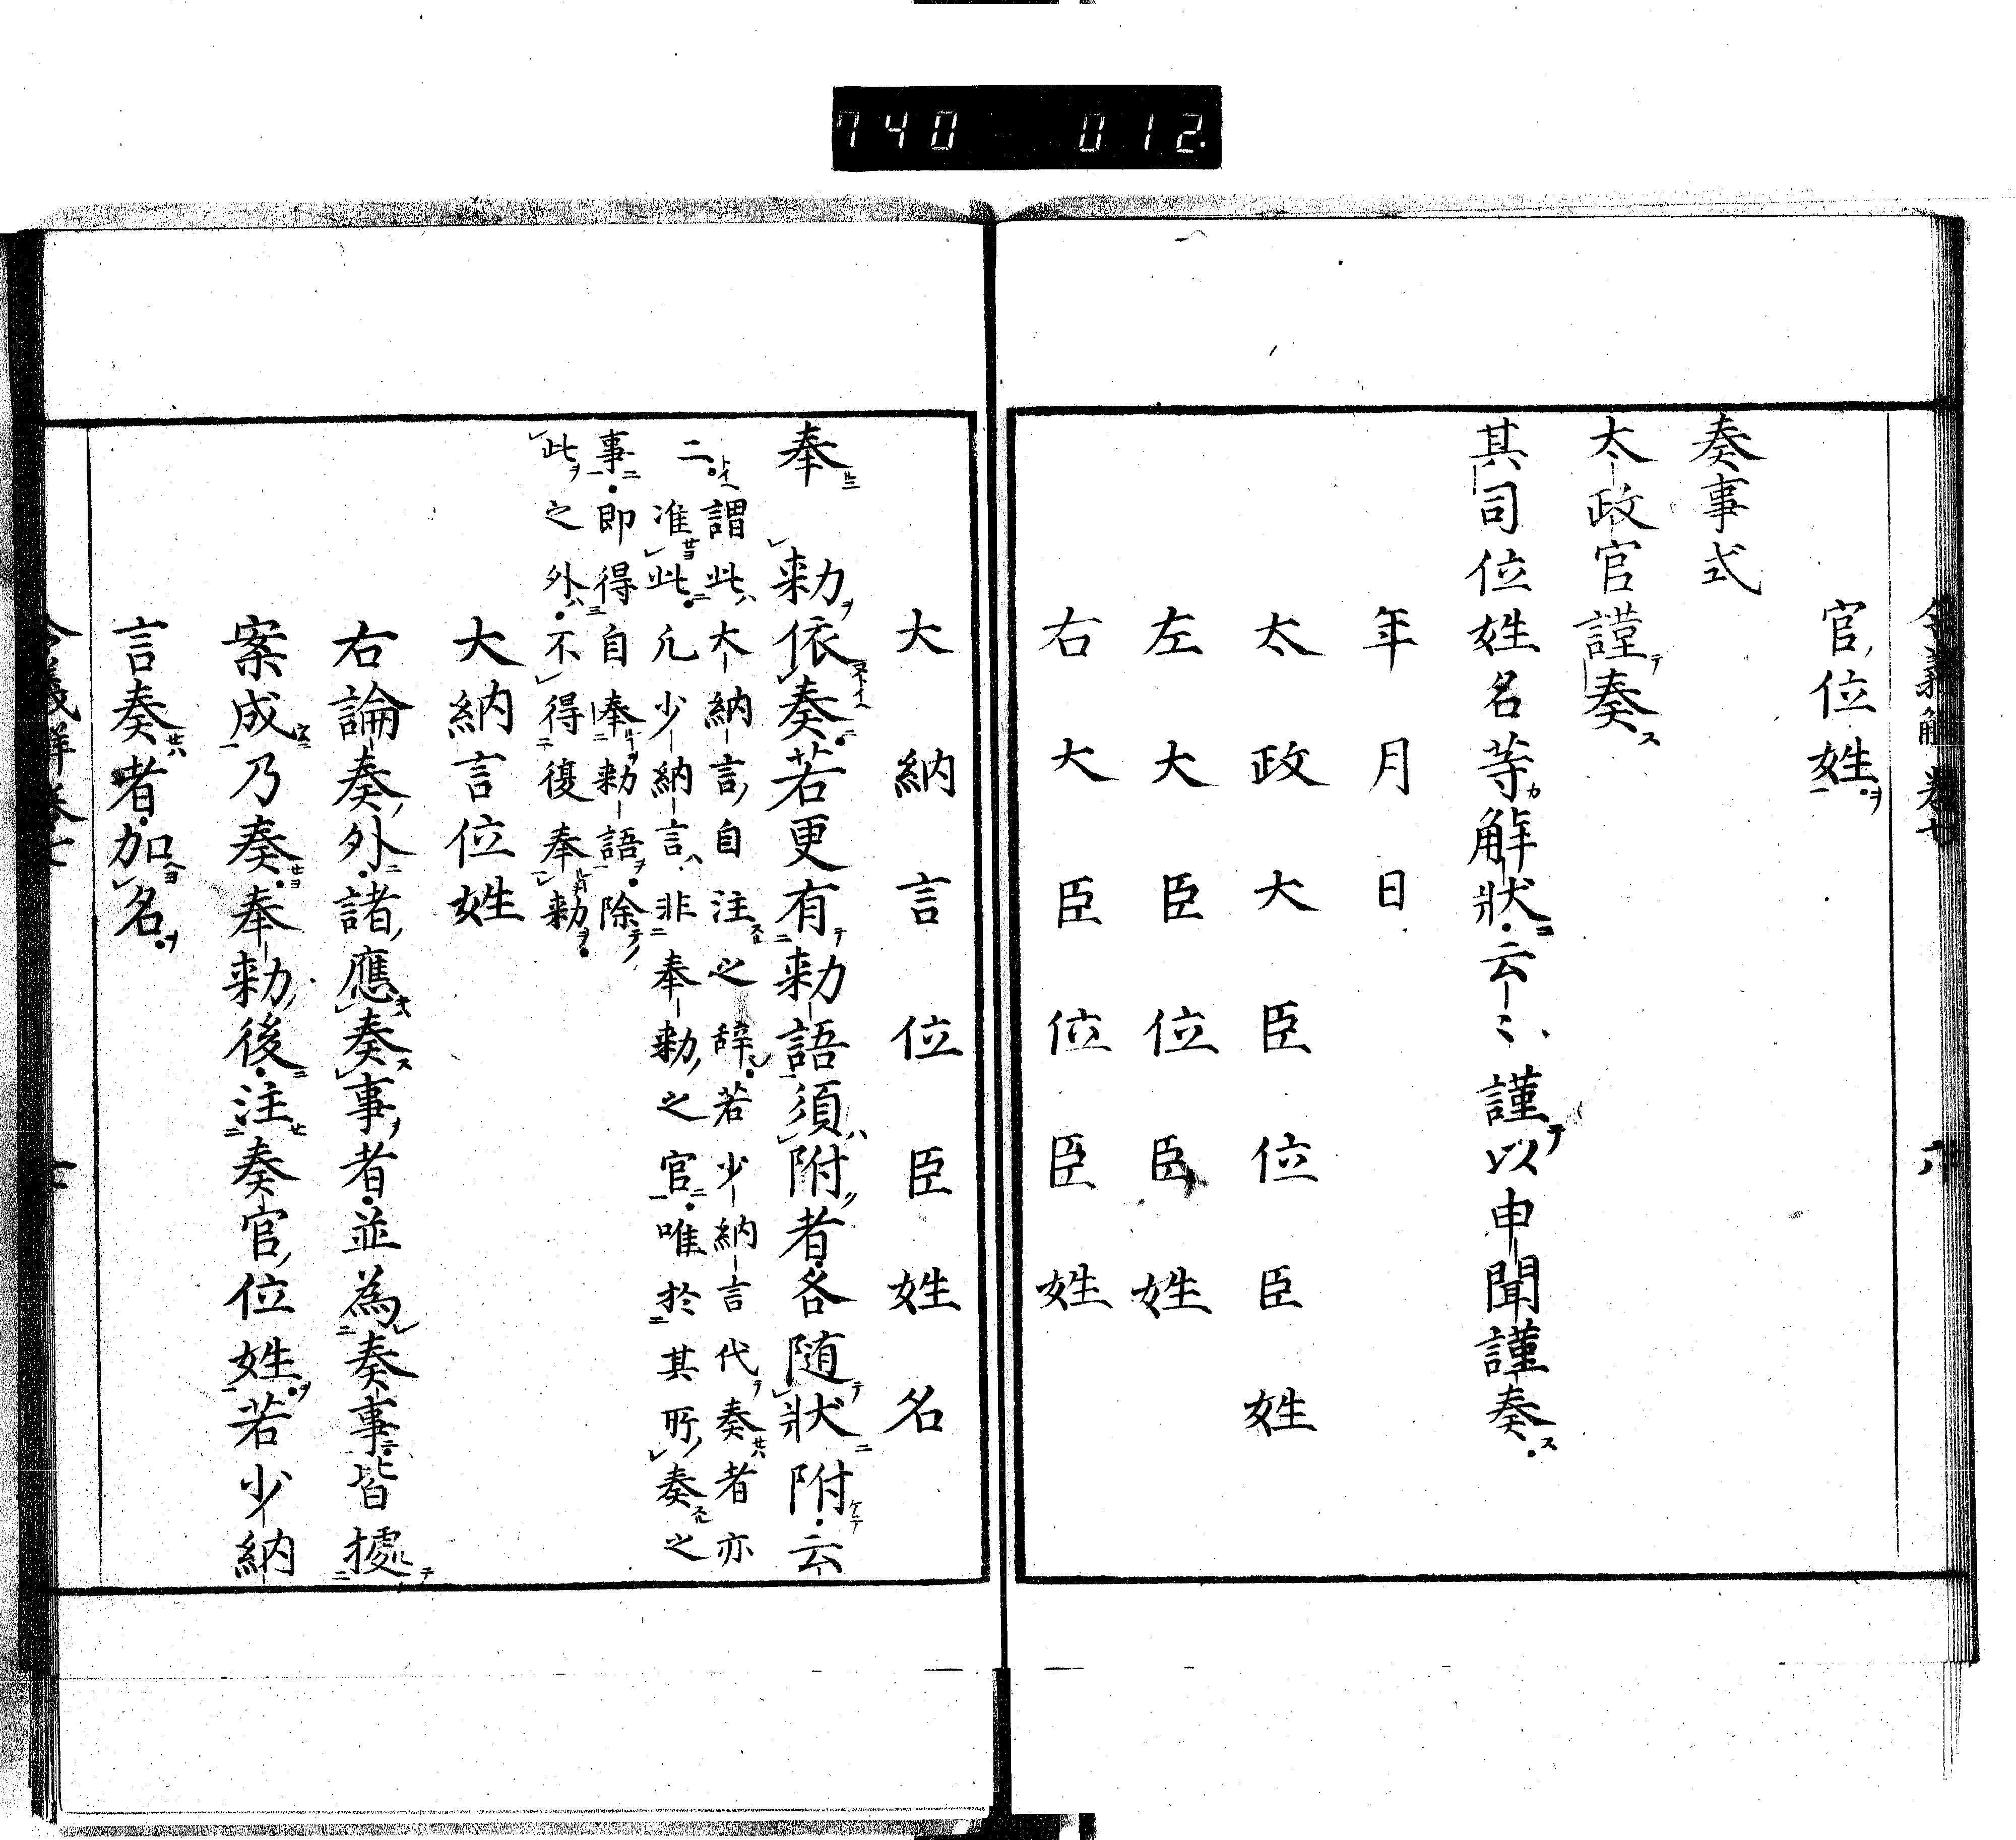 740 012
令義解 卷七 六
官位姓
奏事式
太政官謹奏
其司位姓名等解狀云〻謹以申聞謹奏
年月日
太政大臣位臣姓
左大臣位臣姓
右大臣位臣姓
大納言位臣姓名
奉 勅依奏若更有勅語須附者各随狀附云
二
謂此大納言自注之辞若少納言代奏者亦
准此凢少納言非奉勅之官唯於其所奏之
事即得自奉勅語除
此之外不得復奉勅
大納言位姓
右論奏外諸應奏事者並為奏事皆據
案成乃奏奉勅後注奏官位姓若少納
言奏者加名
令義解卷七 七